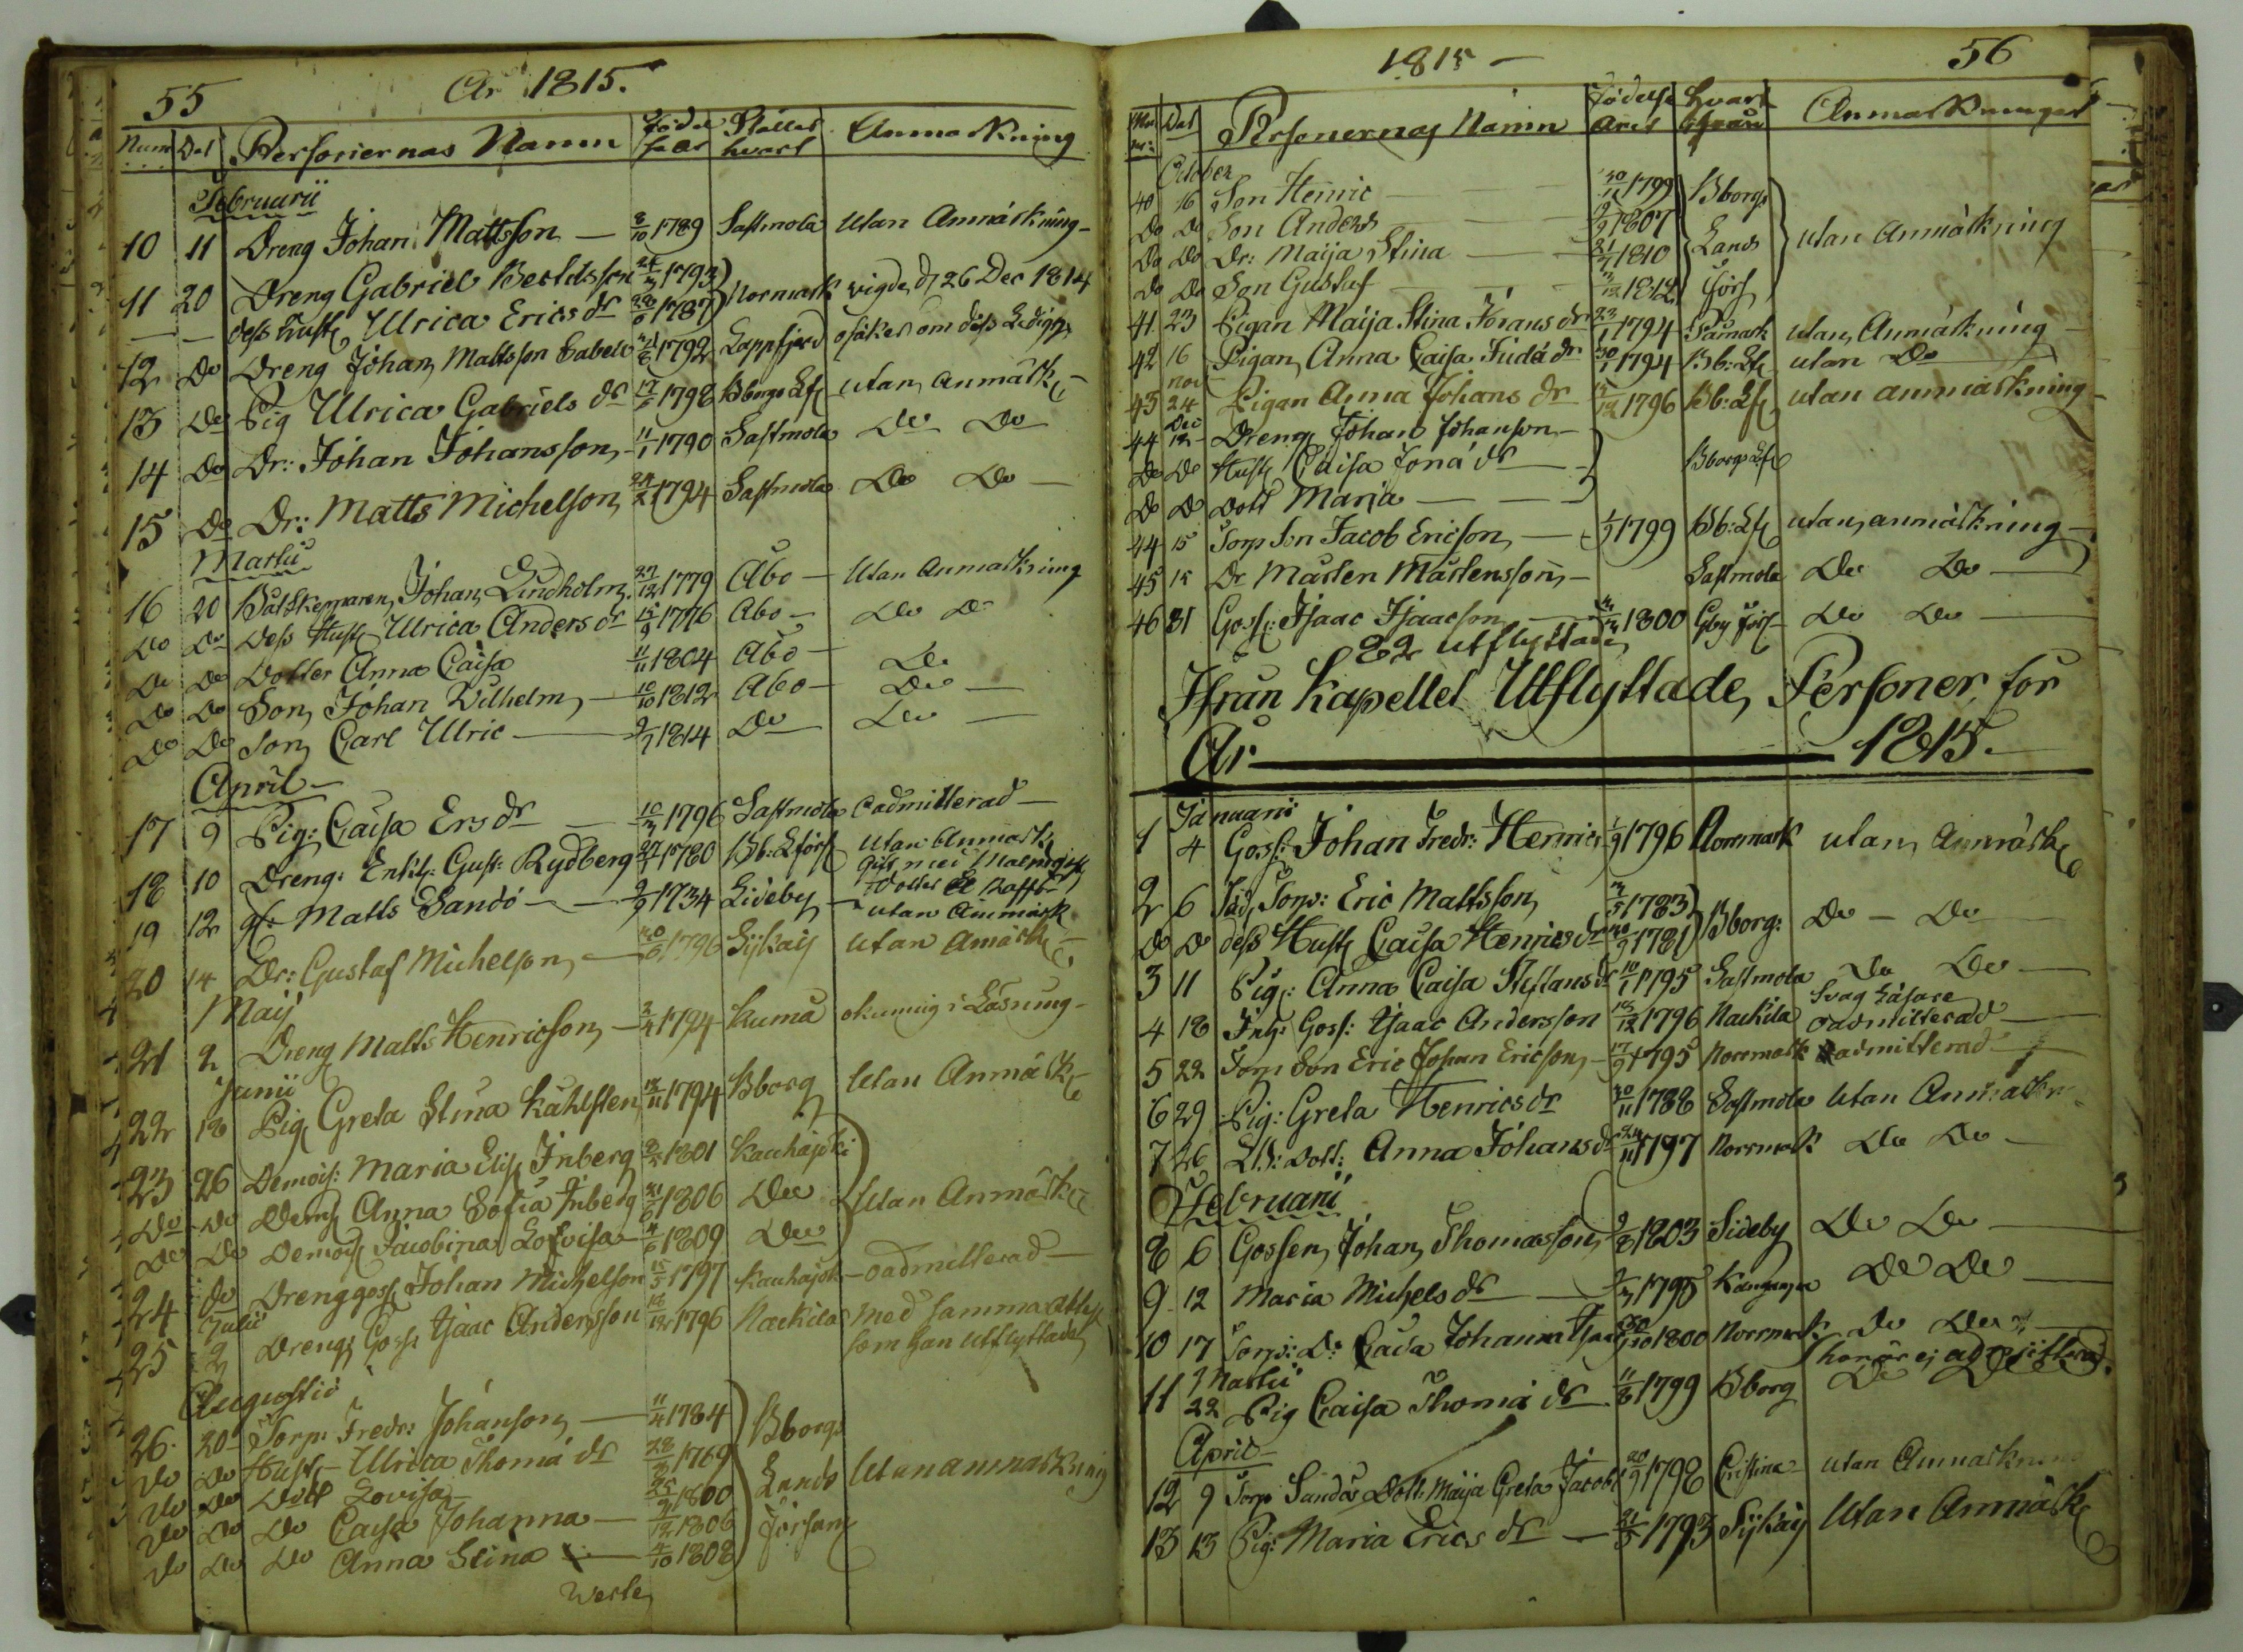 55 År 1815.
Num Dat Personernas Namn Födelse år Stället hvart Anmärkning
Februarii
10 11 Dreng Johan Mattsson — 8/10 1789 Sastmola Utan Anmärkning —
11 20 Dreng Gabriel 1793 Norrmark vigde d 26 Dec 1814
— — dess hust Ulrica Ericsdr 1787
12 Do Dreng Johan Mattsson 1792 Lappfjerd osäker om dess
13 Do Pig Ulrica Gabrielsdr 17/6 1798 Bborgs Lf utan anmärk
14 Do Dr: Johan Johansson 11/1 1790 Sastmola Do Do
15 Do Dr: Matts Michelson 24/2 1794 Sastmola Do Do —
Martii
16 20 Båtskepparen Johan Lindholm 27/12 1779 Åbo — Utan Anmarkning
Do Do Dess Hust Ulrica Andersdr 15/9 1776 Abo — Do Do
Do Do Dotter Anna Caisa 11/11 1804 Abo — Do
Do Do Son Johan Wilhelm — 10/10 1812 Abo — Do —
Do Do Son Carl Ulric — 9/7 1814 Do Do —
April —
17 9 Pig: Caisa Ersdr — 10/3 1796 Sastmola oadmitterad —
18 10 Dreng: Enkl: Gust: Rydberg 27/7 1780 Bb: L förs Utan Anmärk
19 12 Matts Sandö — 9/9 1734 Sideby — utan Anmärk
20 14 Dr: Gustaf Michelson — 1796 Sÿkaij utan Amärk
Maij
21 2 Dreng Matts Henricson — 2/4 1794 Kumå okunnig i Läsning —
Junii
22 18 Pig Greta Stina Kahlsten 13/11 1794 Bborg Utan Anmärk
23 26 Demois: Maria Elis Inberg 8/2 1801 Kauhajoki
Do Do Demois Anna Sofia Inberg 21/6 1806 Do Utan Anmärk
Do Do Demois Jacobina Lovisa 4/6 1809 Do
24 Do Drenggoss Johan Michelson 15/5 1797 Kauhajok — oadmitterad —
Julii
25 2 Dreng Goss Isaac Andersson 16/12 1796 Nackila med samma attest
som han utflyttade
Augustii
26. 20 Torp: Fredr: Johanson — 11/4 1784 Bborgs
Do Do Hust — Ulrica Thomädr 28/3 1769
Do Do Dott Lovisa 25/9 1800 Lands Utan anmarkning
Do Do Do Caisa Johanna — 9/12 1806 Försam
Do Do Do Anna Stina — 4/10 1808
1815 — 56
Num Dat Personernas Namn Födelse Året Hvart ifrån Anmarkningar
October
40 16 Son Henric — 30/11 1799 Bborgs
Do Do Son Anders — 1807
Do Do Dr: Maija Stina — 21/7 1810 Lands utan Anmärkning
Do Do Son Gustaf — 1812 förs
41 23 Pigan Maija Stina Joransdr 23/1 1794 Påmark utan Anmärkning
42 16 Pigan Anna Caisa 30/1 1794 Bb: Lf utan Do
nov
43 24 Pigan Anna Johansdr 15/12 1796 Bb: Lf utan anmärkning —
Dec
44 12 Dreng Johan Johanson —
Do Do Hust Caisa Jonädr — Bborgs Lf
Do Do Dott Maria —
44 15 Torp Son Jacob Ericson — 1/7 1799 Bb: Lf utan anmärkning —
45 15 Dr Mårten Mårtensson — Sastmola Do Do —
46 31 Goss: Isaac Isaacson — 1800 Gby förs Do Do —
82 utflyttade
Ifrån Kapellet Utflyttade Personer för
År — 1815. —
Januarii
1 4 Goss: Johan Fredr: Henrics 1/9 1796 Norrmark utan Anmärk
2 6 Torp: Eric Mattsson 1783
Do Do dess Hust Caisa Henricsdr 1781 Bborg: Do — Do
3 11 Pig: Anna Caisa Stefansdr 10/1 1795 Sastmola Do Do —
Svag Läsare
4 18 Inh: Goss: Isaac Andersson 16/12 1796 Nackila oadmitterad —
5 22 Torp Son Eric Johan Ericson — 17/9 1795 Norrmark oadmitterad —
6 29 Pig: Greta Henricsdr 30/11 1788 Sastmola Utan Anmärkn
7 26 Dott: Anna Johansdr 24/11 1797 Norrmark Do Do —
Februarii
8 6 Gossen Johan Thomasson 9/8 1803 Sideby Do Do —
9 12 Maria Michelsdr — 1795 Do Do —
10 17 Torp: Dr: Caisa Johanna 1800 Norrmark Do Do —
hon är ej admitterad.
Martii
11 22 Pig Caisa Thomädr 11/8 1799 Bborg Do Do
April —
12 9 Torp Sandås Dott: Maija Greta Jacobs 20/9 1798 Cristina utan Anmarkning
13 13 Pig: Maria Ericsdr — 21/5 1793 Sÿkaij Utan Anmärk